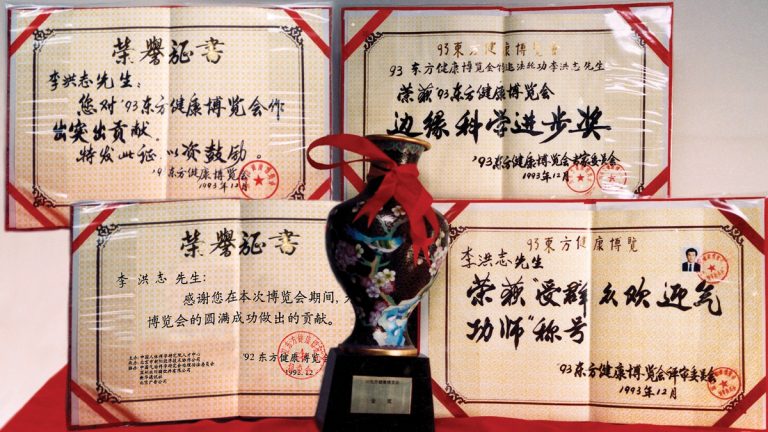 荣誉证书
李洪志先生:
您对'93东方健康博览会作
出突出贡献.
特发此征.以资鼓励。
'92东方健康博览会
1993.年12月
93東方健康博览會
93东方健康博览会特邀法轮功李洪志先生
荣获'93东方健康博览会
边缘科学进步奖
'93东方健康博览会专家委员会
1993年12月
荣誉证书
李洪志先生:
感谢您在本次博览会期间,
博览会的圆满成功做出的贡献.
'92东方健康博览会
1992.12
93東方健康博览
李洪志先生
荣获"受群众欢迎气
功师"称号
'93东方健康博览会评审委员会
1993年12月